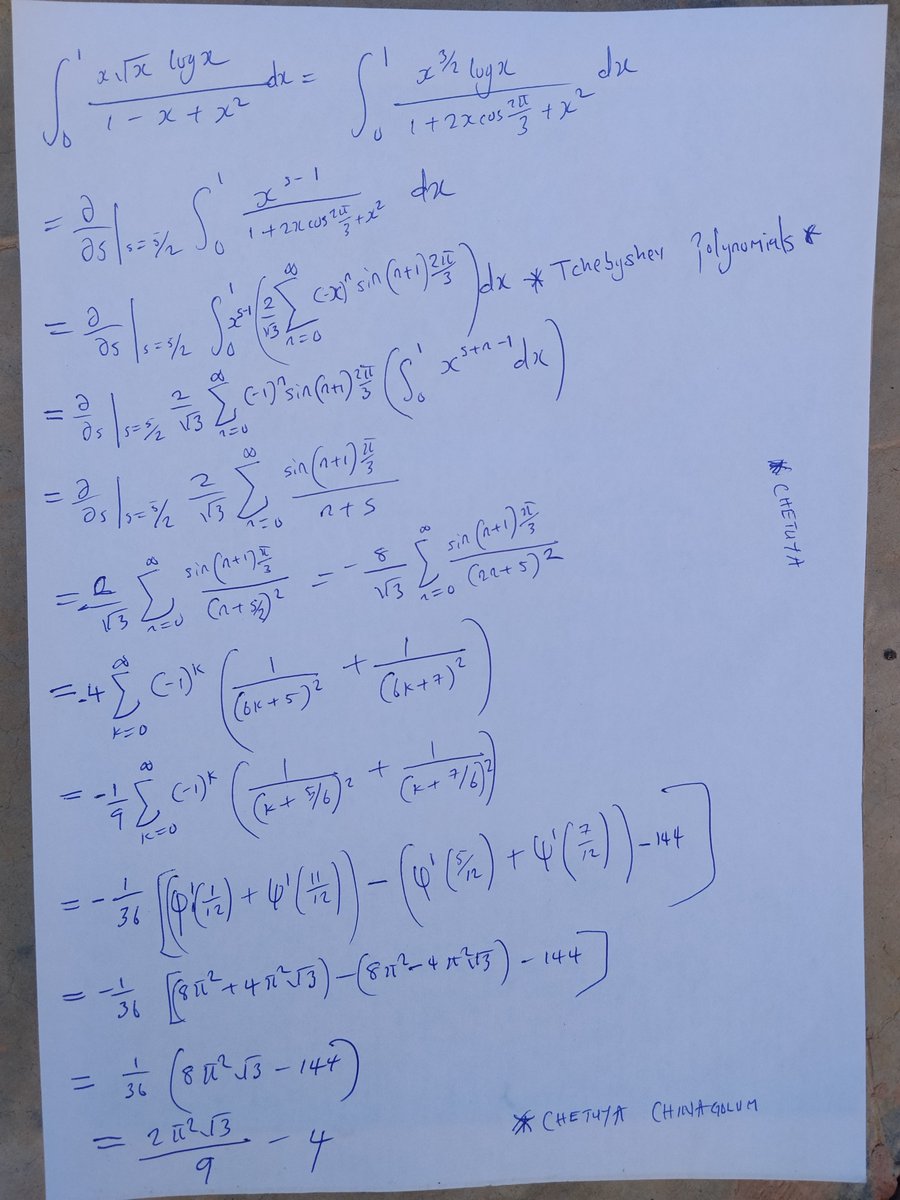 ∫₀¹ x√x logx / (1 − x + x²) dx = ∫₀¹ x^(3/2) logx / (1 + 2x cos 2π/3 + x²) dx
= ∂/∂s |s=5/2 ∫₀¹ x^(s−1) / (1 + 2x cos 2π/3 + x²) dx
= ∂/∂s |s=5/2 ∫₀¹ x^(s−1) (2/√3 ∑_{n=0}^∞ (−x)ⁿ sin(n+1) 2π/3) dx * Tchebyshev Polynomials *
= ∂/∂s |s=5/2 2/√3 ∑_{n=0}^∞ (−1)ⁿ sin(n+1) 2π/3 (∫₀¹ x^(s+n−1) dx)
= ∂/∂s |s=5/2 2/√3 ∑_{n=0}^∞ sin(n+1) π/3 / (n+s)
= −2/√3 ∑_{n=0}^∞ sin(n+1) π/3 / (n+5/2)² = −8/√3 ∑_{n=0}^∞ sin(n+1) π/3 / (2n+5)²
= −4 ∑_{k=0}^∞ (−1)^k (1/(6k+5)² + 1/(6k+7)²)
= −1/9 ∑_{k=0}^∞ (−1)^k (1/(k+5/6)² + 1/(k+7/6)²)
= −1/36 [(ψ'(1/12) + ψ'(11/12)) − (ψ'(5/12) + ψ'(7/12)) − 144]
= −1/36 [(8π² + 4π²√3) − (8π² − 4π²√3) − 144]
= 1/36 (8π²√3 − 144)
= 2π²√3/9 − 4
* CHETUYA
* CHETUYA CHINAGOLUM